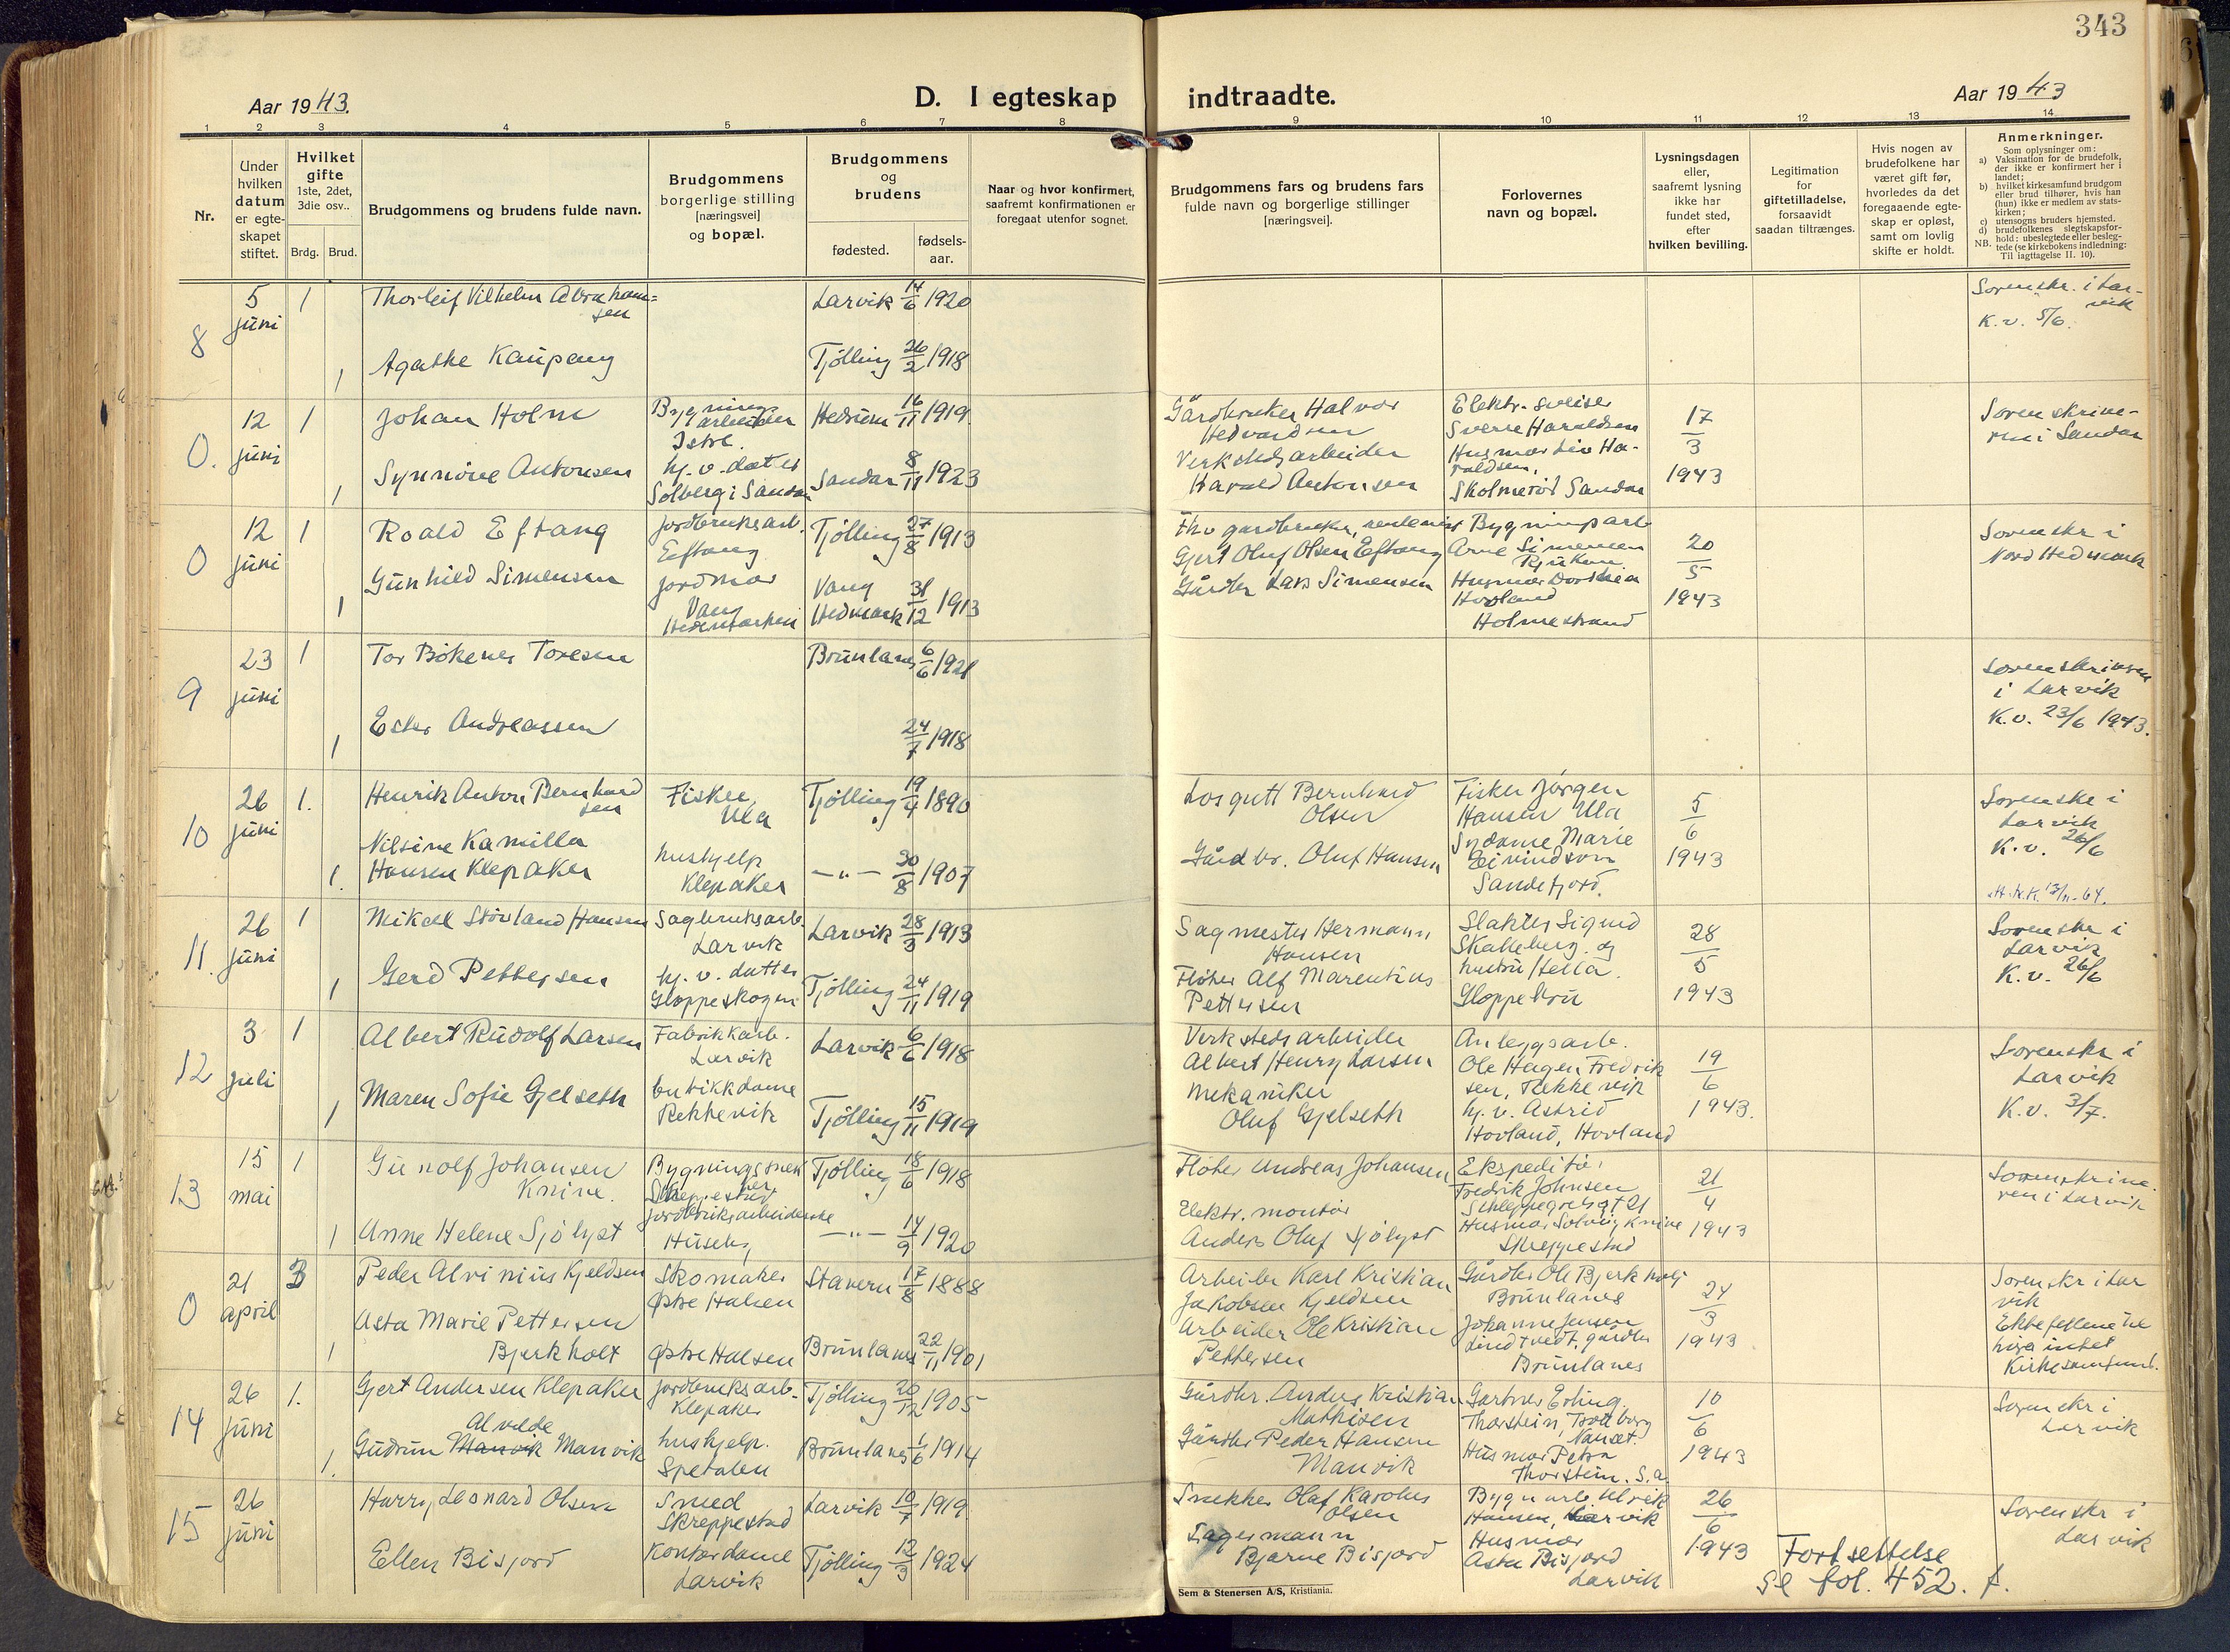 343
Aar 1943.
D. I egteskap indtraadte.
Aar 1943
1 2 3 4 5 6 7 8 9 10 11 12 13 14
Nr.
Under
hvilken
datum
er egte-
skapet
stiftet.
Hvilket
gifte
1ste, 2det,
3die osv..
Brdg. Brud.
Brudgommens og brudens fulde navn.
Brudgommens
borgerlige stilling
[næringsvei]
og bopæl.
Brudgommens
og
brudens
fødested.
fødsels-
aar.
Naar og hvor konfirmert,
saafremt konfirmationen er
foregaat utenfor sognet.
Brudgommens fars og brudens fars
fulde navn og borgerlige stillinger
[næringsvei].
Forlovernes
navn og bopæl.
Lysningsdagen
eller,
saafremt lysning
ikke har
fundet sted,
efter
hvilken bevilling.
Legitimation
for
giftetilladelse,
forsaavidt
saadan tiltrænges.
Hvis nogen av
brudefolkene har
været gift før,
hvorledes da det
foregaaende egte-
skap er opløst,
samt om lovlig
skifte er holdt.
Anmerkninger.
Som oplysninger om:
a) Vaksination for de brudefolk,
der ikke er konfirmert her i
landet;
b) hvilket kirkesamfund brudgom
eller brud tilhører, hvis han
(hun) ikke er medlem av stats-
kirken;
c) utensogns bruders hjemsted.
d) brudefolkenes slegtskapsfor-
hold: ubeslegtede eller besleg-
NB. tede (se kirkebokens indledning:
Til iagttagelse II. 10).
8
5
juni
1
Thorleif Vilhelm Abraham=
sen
Larvik 14/6 1920
Sorenskr. i Lar-
vik
K.v. 5/6.
1
Agathe Kaupang
Tjølling 26/2 1918
0.
12
juni
1
Johan Holm
Bygnings
arbeider
Istre.
Hedrum 16/11 1919.
Gårdbruker Halvor
Hedvardsen
Elektr. sveiser
Sverre Haraldsen
17/3
1943
Sorenskrive-
ren i Sandar
1
Synnöve Antonsen
hj.v. datter
Solberg i Sandar
Sandar 8/11 1923
Verkstedsarbeider
Harald Antonsen
Husmor Liv Ha-
raldsen,
Skolmeröd Sandar
0
12
juni
1
Roald Eftang
jordbruksarb.
Eftang
Tjølling 27/8 1913
Fhv gardbruker, rentenist
Gjert Oluf Olsen Eftang
Bygningsarb
Arne Simensen
Rjukan
20/5
1943
Sorenskr i
Nord Hedmark
1
Gunhild Simensen
jordmor
Vang
Hedemarken
Vang
Hedmark 31/12 1913
Gårdbr Lars Simensen
Husmor Dorthea
Hovland
Holmestrand
9
23
juni
1
Tor Bökenes Toresen
Brunlanes 6/6 1921
Sorenskriveren
i Larvik
K.v. 23/6 1943.
1
Ester Andreassen
24/7 1918
10
26
juni
1.
Henrik Anton Bernhard
sen
Fisker,
Ula
Tjølling 19/4 1890
Losgutt Bernhard
Olsen
Fisker Jørgen
Hansen Ula
5/6
1943
Sorenskr i
Larvik
K.v. 26/6
1.
Nilsine Kamilla
Hansen Klepaker
hushjelp
Klepaker
—"— 30/8 1907
Gårdbr. Oluf Hansen
Sydame Marie
Eivindson
Sandefjord.
11.
26
juni
1
Mikael Stövland Hansen
Sagbruksarb.
Larvik
Larvik 28/3 1913
Sagmester Hermann
Hansen
Slakter Sigurd
Skalleberg og
28/5
1943
Sorenskr i
Larvik
K.v. 26/6
1
Gerd Pettersen
hj.v. datter
Gloppeskogen
Tjølling 24/11 1919
Fløter Alf Marentius
Pettersen
hustru Hella.
Gloppe bru
12
3
juli
1
Albert Rudolf Larsen
Fabrikkarb.
Larvik
Larvik 6/6 1918
Verkstedsarbeider
Albert Henry Larsen
Anleggsarb.
Ole Hagen Fredrik
sen, Rekkevik
19/6
1943.
Sorenskr i
Larvik
K.v. 3/7.
1
Maren Sofie Gjelseth
butikkdame
Rekkevik
Tjølling 15/11 1919
Mekaniker
Oluf Gjelseth
hj.v. Astrid
Hovland, Hovland
13
15
mai
1
Gunolf Johansen
Knive.
Bygningssnek
ker
Skreppestad
Tjølling 18/6 1918
Fløter Andreas Johansen
Ekspeditør
Fredrik Johnsen
21/4
1943
Sorenskrive-
ren i Larvik
1
Anne Helene Sjölyst
jordbruksarbeiderske
Huseby
—"— 14/9 1920
Elektr. montör
Anders Oluf Sjölyst
Husmor Solveig Knive
Skreppestad
0
21
april
3
Peder Alvinius Kjeldsen
Skomaker
Østre Halsen
Stavern 17/8 1888
Arbeider Karl Kristian
Jakobsen Kjeldsen
Gårdbr Ole Bjerkholt
Brunlanes
24/3
1943
Sorenskr i Lar
vik
Ektefellene til
hörer intet
Kirkesamfund.
1
Asta Marie Pettersen
Bjerkholt
Østre Halsen
Brunlanes 22/11 1901
Arbeider Ole Kristian
Pettersen
Johanne Jensen
Lindtvedt, gårdbr
Brunlanes
14
26
juni
1.
Gjert Andersen Klepaker
jordbruksarb.
Klepaker
Tjølling 20/12 1905
Gårdbr. Anders Kristian
Mathisen
Gartner Erling
Thorstein, Trollborg
Nanset.
10/6
1943
Sorenskr i
Larvik
1.
Alvilde
Gudrun Manvik Manvik
hushjelp.
Spetalen
Brunlanes 1/6 1914
Gårdbr Peder Hansen
Manvik
Husmor Petra
Thorstein. S.a.
15
26
juni
Harry Leonard Olsen
Smed
Skreppestad
Larvik 10/7 1919.
Snekker Olaf Karolius
Olsen
Bygn arb. Ulrik
Hansen, Larvik
26/6
1943
Sorenskr i
Larvik
Ellen Bisjord
Kontordame
Larvik
Tjølling 12/3 1924
Lagermann
Bjarne Bisjord
Husmor
Asta Bisjord
Larvik
Fortsettelse
se fol. 452. f.
Sem & Stenersen A/S, Kristiania.